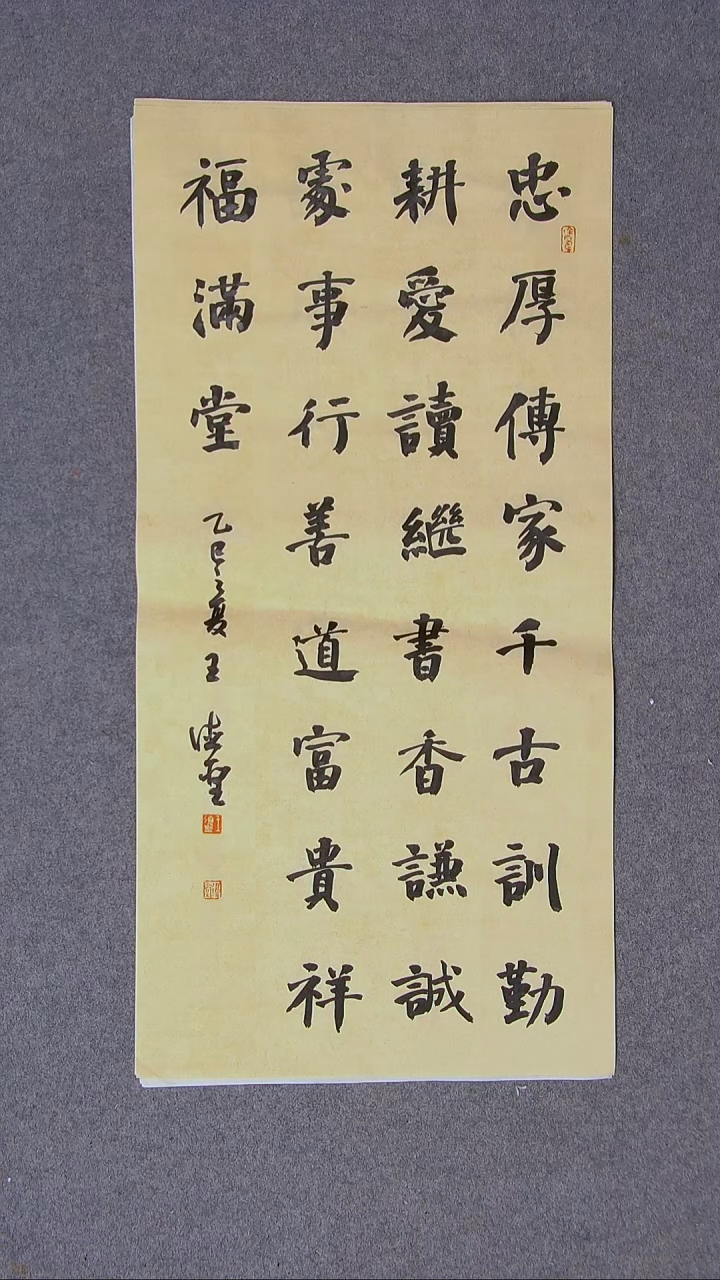 忠厚傳家千古訓勤
耕愛讀繼書香謙誠
處事行善道富貴祥
福滿堂
乙巳之夏王德聖